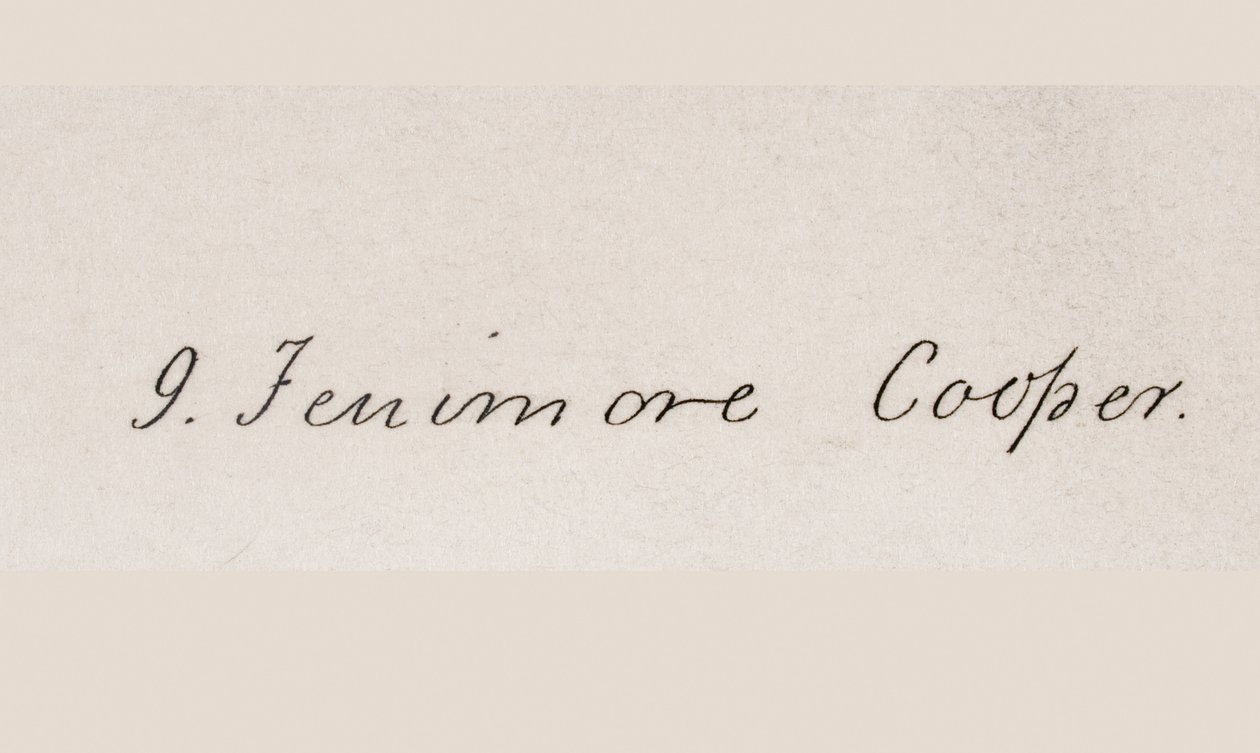 J. Fenimore Cooper.